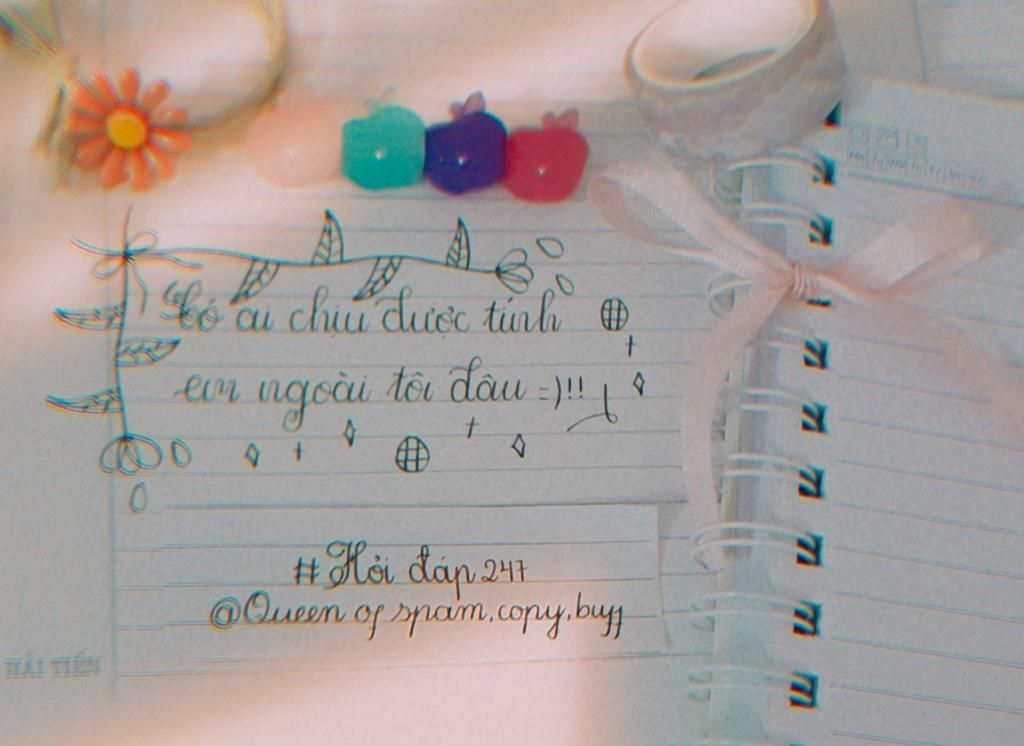 "Có ai chịu được tính
em ngoài tôi đâu =)!!
# Hỏi đáp 247
@Queen of spam.copy.buff
HẢI TIẾN